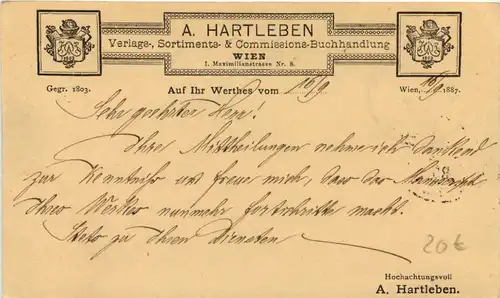 A. HARTLEBEN
Verlags-, Sortiments- & Commissions-Buchhandlung
WIEN
I. Maximilianstrasse Nr. 8.
Gegr. 1803.
Auf Ihr Werthes vom 15/9
Wien, 16/9 1887.
Sehr geehrter Herr!
Ihre Mittheilungen nehme ich dankend
zur Kenntniss und freue mich, dass das Manuscript
Ihres Werkes nunmehr fortschritte macht.
Stets zu Ihren Diensten
20€
Hochachtungsvoll
A. Hartleben.